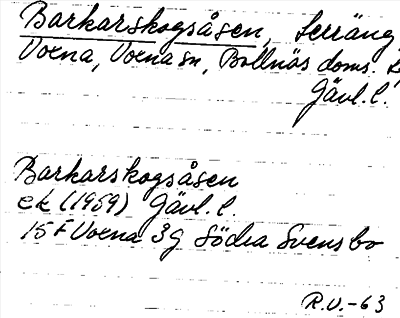 Barkarskogsåsen, terräng
Voxna, Voxna sn, Bollnäs doms.
Gävl. l.
Barkarskogsåsen
ek (1959) Gävl. l.
15 F Voxna 3g Södra Svensbo
R.U.-63